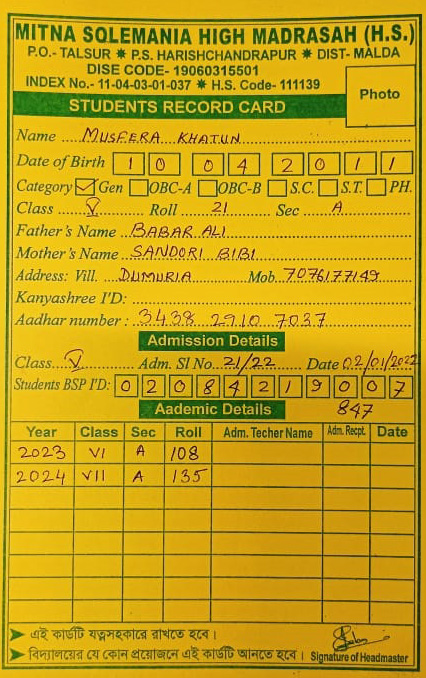 MITNA SOLEMANIA HIGH MADRASAH (H.S.)
P.O.- TALSUR ✷ P.S. HARISHCHANDRAPUR ✷ DIST- MALDA
DISE CODE- 19060315501
INDEX No.- 11-04-03-01-037 ✷ H.S. Code- 111139
STUDENTS RECORD CARD
Photo
Name MUSFERA KHATUN
Date of Birth 10 04 2011
Category ☑ Gen ☐ OBC-A ☐ OBC-B ☐ S.C. ☐ S.T. ☐ PH.
Class V Roll 21 Sec A
Father's Name BABAR ALI
Mother's Name SANDORI BIBI
Address: Vill. DUMURIA Mob. 7076177149
Kanyashree I'D:
Aadhar number : 3438 2910 7037
Admission Details
Class V Adm. Sl No. 21/22 Date 02/01/2022
Students BSP I'D: 02084219007
Aademic Details 847
Year Class Sec Roll Adm. Techer Name Adm. Recpt. Date
2023 VI A 108
2024 VII A 135
➤ এই কার্ডটি যত্নসহকারে রাখতে হবে।
➤ বিদ্যালয়ের যে কোন প্রয়োজনে এই কার্ডটি আনতে হবে। Signature of Headmaster